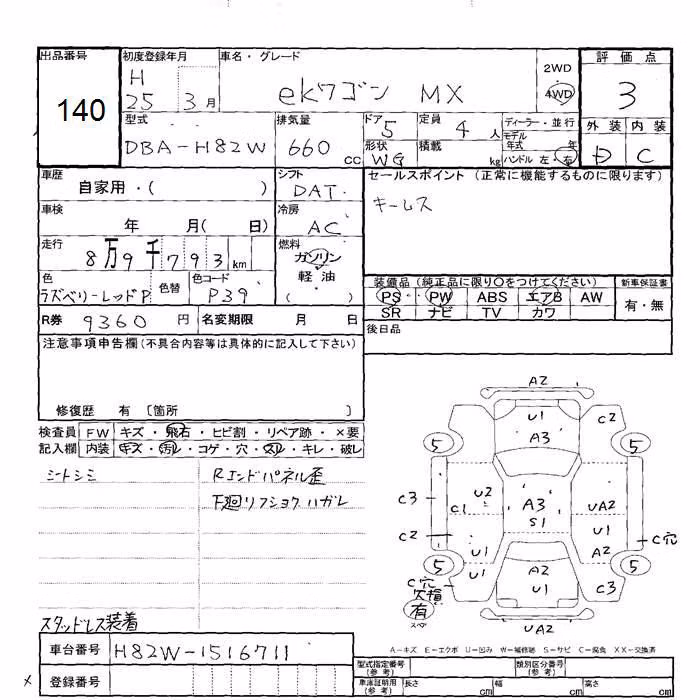 出品番号 初度登録年月 車名・グレード 評価点
140
H 25 3月
ekワゴン MX
2WD
4WD
3
型式 排気量 ドア 5 定員 4人 ディーラー・並行
モデル年式 年
外装 内装
DBA-H82W 660cc 形状 WG 積載 kg ハンドル 左・右
D C
車歴 シフト セールスポイント (正常に機能するものに限ります)
自家用・( ) DAT
キーレス
車検 冷房
年 月( 日) AC
走行 燃料
8万9千793km ガソリン
軽・油
( )
色 色替 色コード
ラズベリーレッドP P39
装備品 (純正品に限り〇をつけてください) 新車保証書
PS PW ABS エアB AW 有・無
SR ナビ TV カワ
R券 9360円 名変期限 月 日
後日品
注意事項申告欄(不具合内容等は具体的に記入して下さい)
修復歴 有 〔箇所 〕
検査員 FW キズ・飛石・ヒビ割・リペア跡・×要
記入欄 内装 キズ・汚レ・コゲ・穴・スレ・キレ・破レ
シートシミ Rエンドパネル歪
下廻リフショクハガレ
スタッドレス装着
A2
U1
A3
C2
5 5
C3 U2 C1 A3 S1 UA2
C2 U1 U1 A2 C穴
5 5
U1 A2 U1 C3
C穴
欠損
有
スペア
UA2
A-キズ E-エクボ U-凹み W-補修跡 S-サビ C-腐食 XX-交換済
車台番号 H82W-1516711
登録番号
型式指定番号(参考) 類別区分番号(参考)
車庫証明用(参考) 長さ cm 幅 cm 高さ cm